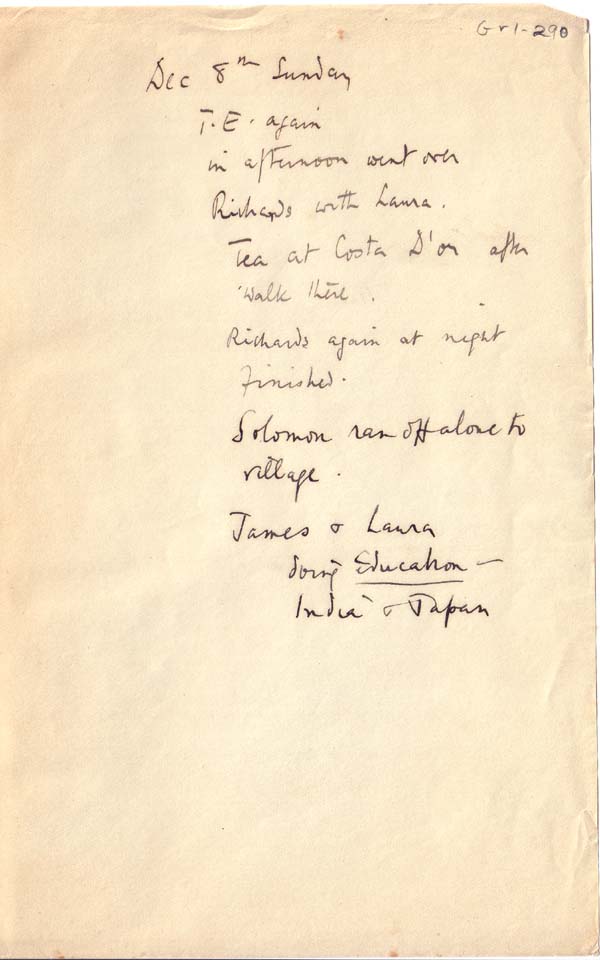 Gr1-290
Dec 8th Sunday
T.E. again
in afternoon went over
Richards with Laura.
Tea at Costa D'or after
walk there.
Richards again at night
Finished.
Solomon ran off alone to
village.
James & Laura
doing Education —
India & Japan